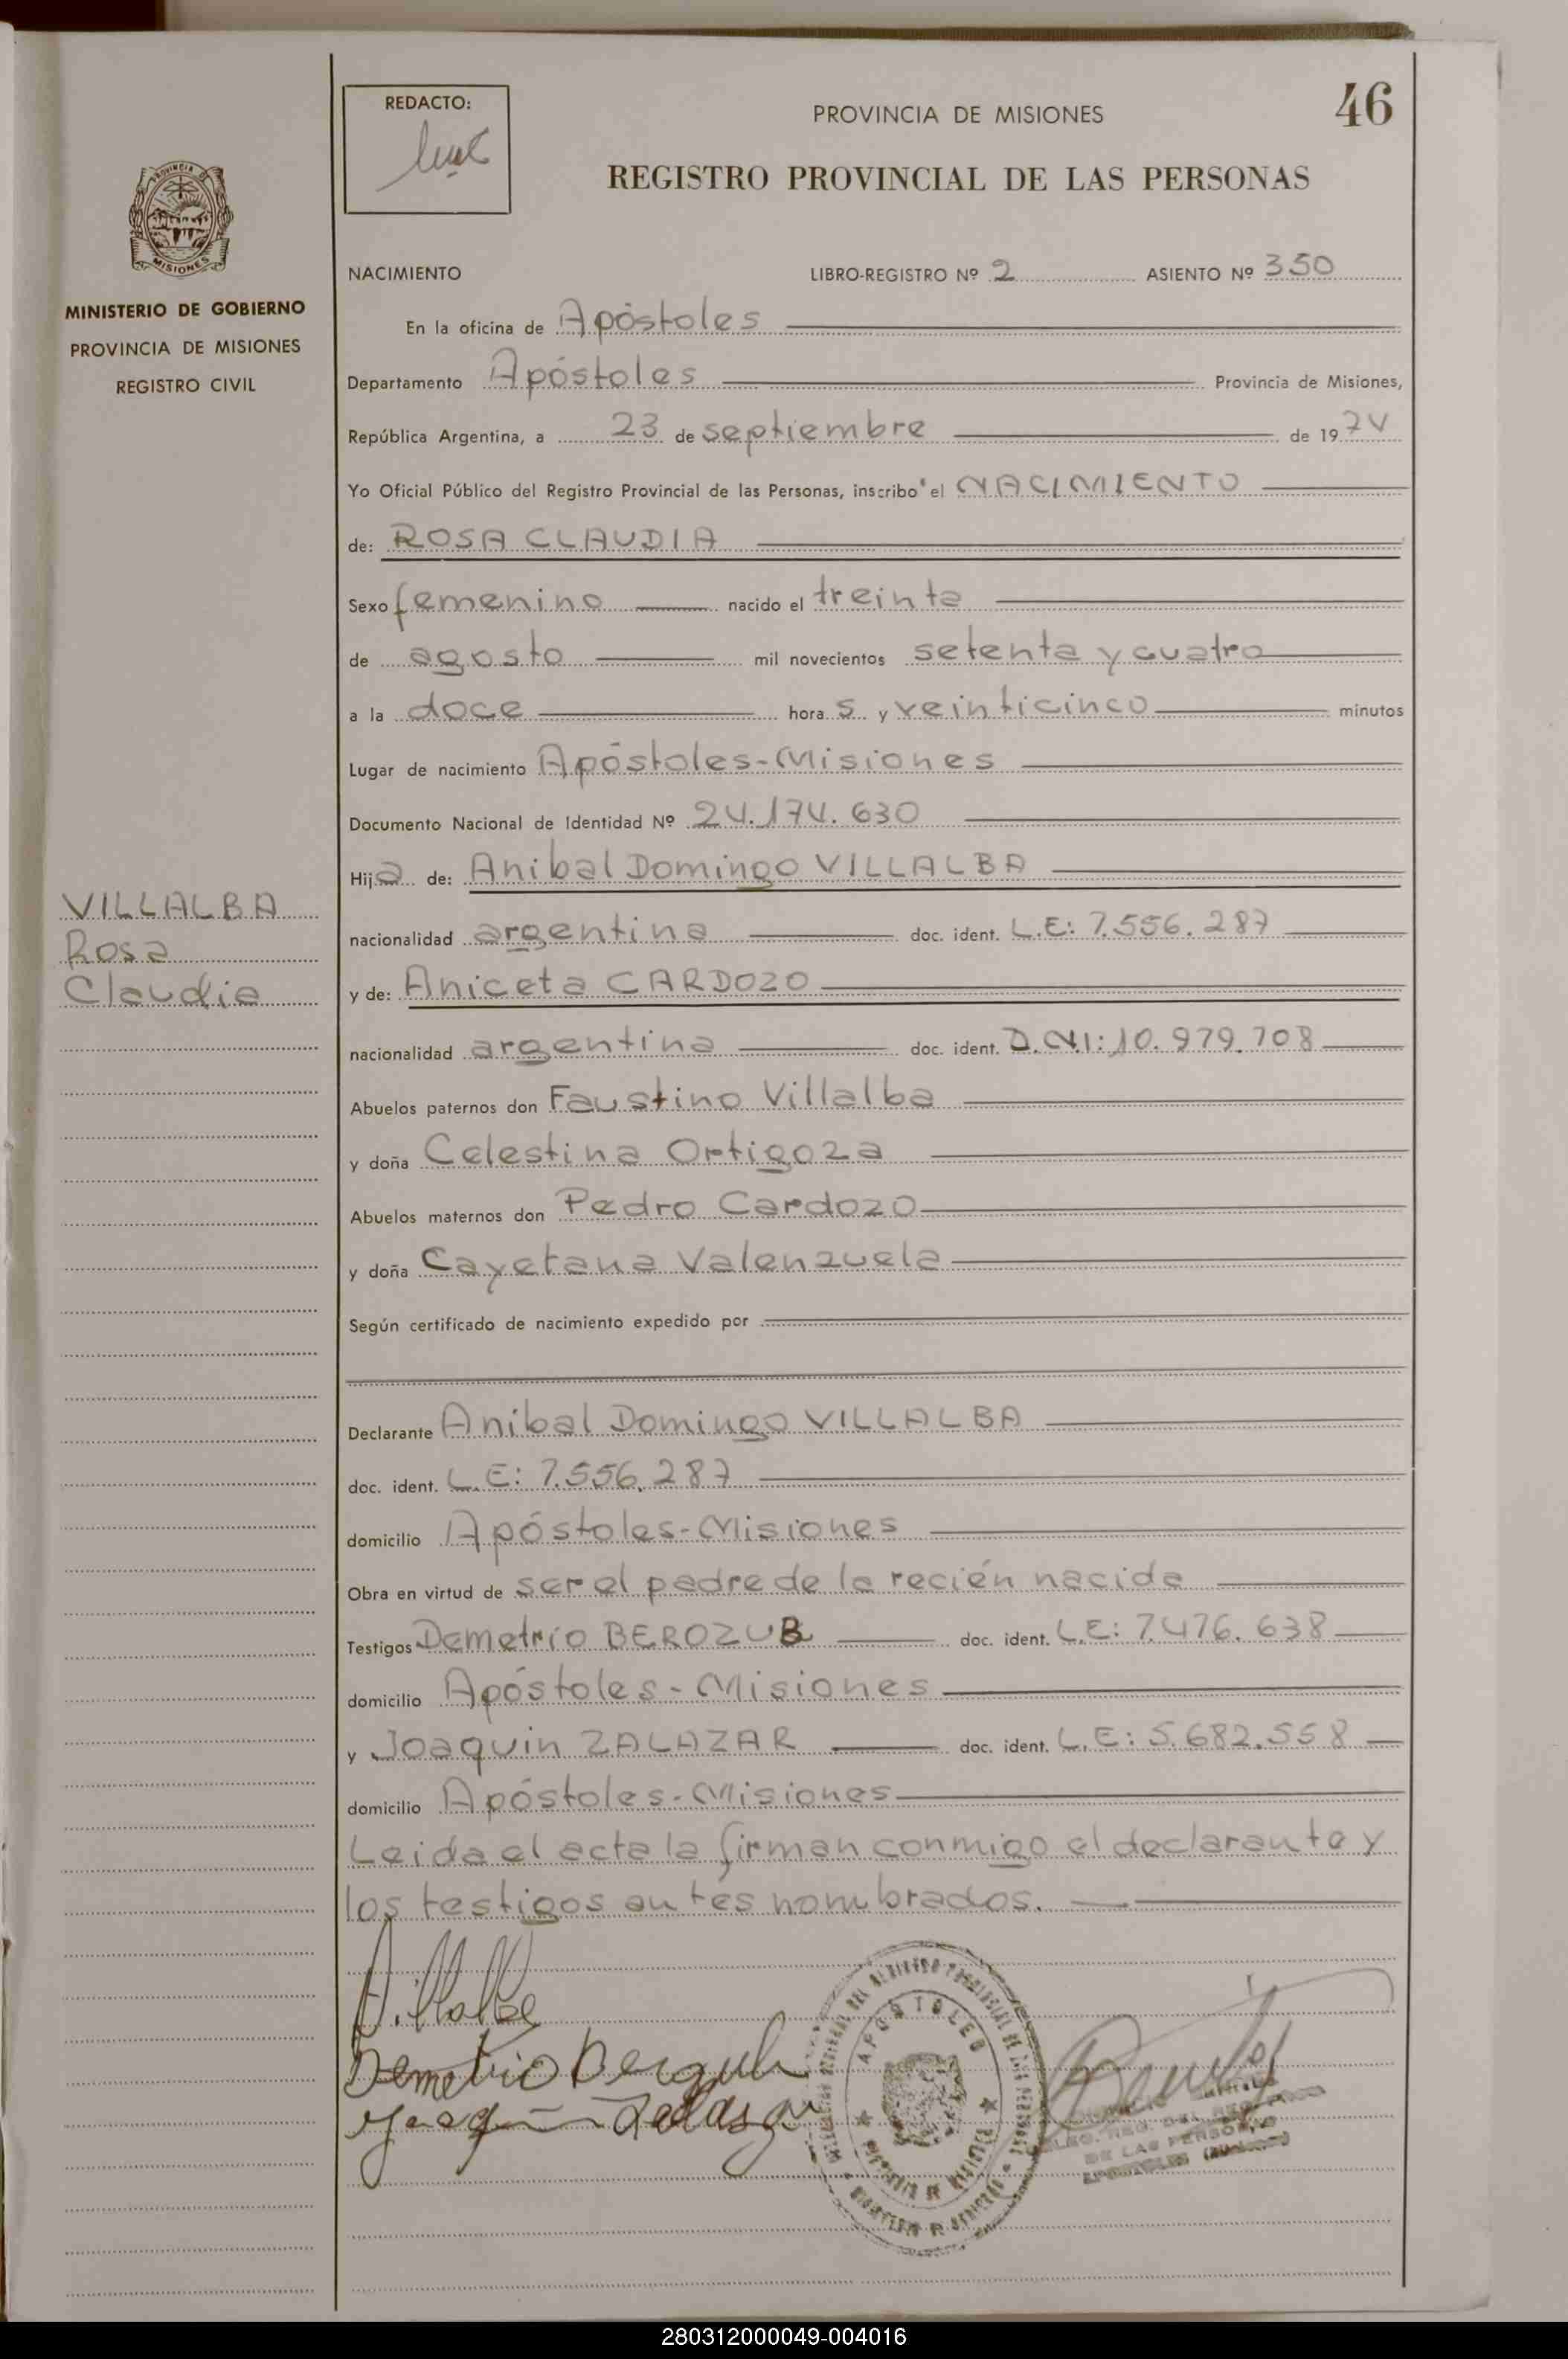 46
REDACTO:
PROVINCIA DE MISIONES
REGISTRO PROVINCIAL DE LAS PERSONAS
MISIONES
MINISTERIO DE GOBIERNO
PROVINCIA DE MISIONES
REGISTRO CIVIL
NACIMIENTO LIBRO-REGISTRO Nº 2 ASIENTO Nº 350
En la oficina de Apóstoles
Departamento Apóstoles Provincia de Misiones,
República Argentina, a 23 de septiembre de 1974
Yo Oficial Público del Registro Provincial de las Personas, inscribo el NACIMIENTO
de: ROSA CLAUDIA
Sexo femenino nacido el treinta
de agosto mil novecientos setenta y cuatro
a la doce horas y veinticinco minutos
Lugar de nacimiento Apóstoles-Misiones
Documento Nacional de Identidad Nº 24.174.630
Hija de: Anibal Domingo VILLALBA
nacionalidad argentina doc. ident. L.E: 7.556.287
y de: Aniceta CARDOZO
nacionalidad argentina doc. ident. D.N.I: 10.979.708
VILLALBA
Rosa
Claudia
Abuelos paternos don Faustino Villalba
y doña Celestina Ortigoza
Abuelos maternos don Pedro Cardozo
y doña Cayetana Valenzuela
Según certificado de nacimiento expedido por
Declarante Anibal Domingo VILLALBA
doc. ident. L.E: 7.556.287
domicilio Apóstoles-Misiones
Obra en virtud de ser el padre de la recién nacida
Testigos Demetrio BEROZUB doc. ident. L.E: 7.476.638
domicilio Apóstoles-Misiones
y Joaquin ZALAZAR doc. ident. L.E: 5.682.558
domicilio Apóstoles-Misiones
Leida el acta la firman conmigo el declarante y
los testigos antes nombrados.
A. Villalba
Demetrio
APOSTOLES
DE LAS PERSONAS
280312000049-004016